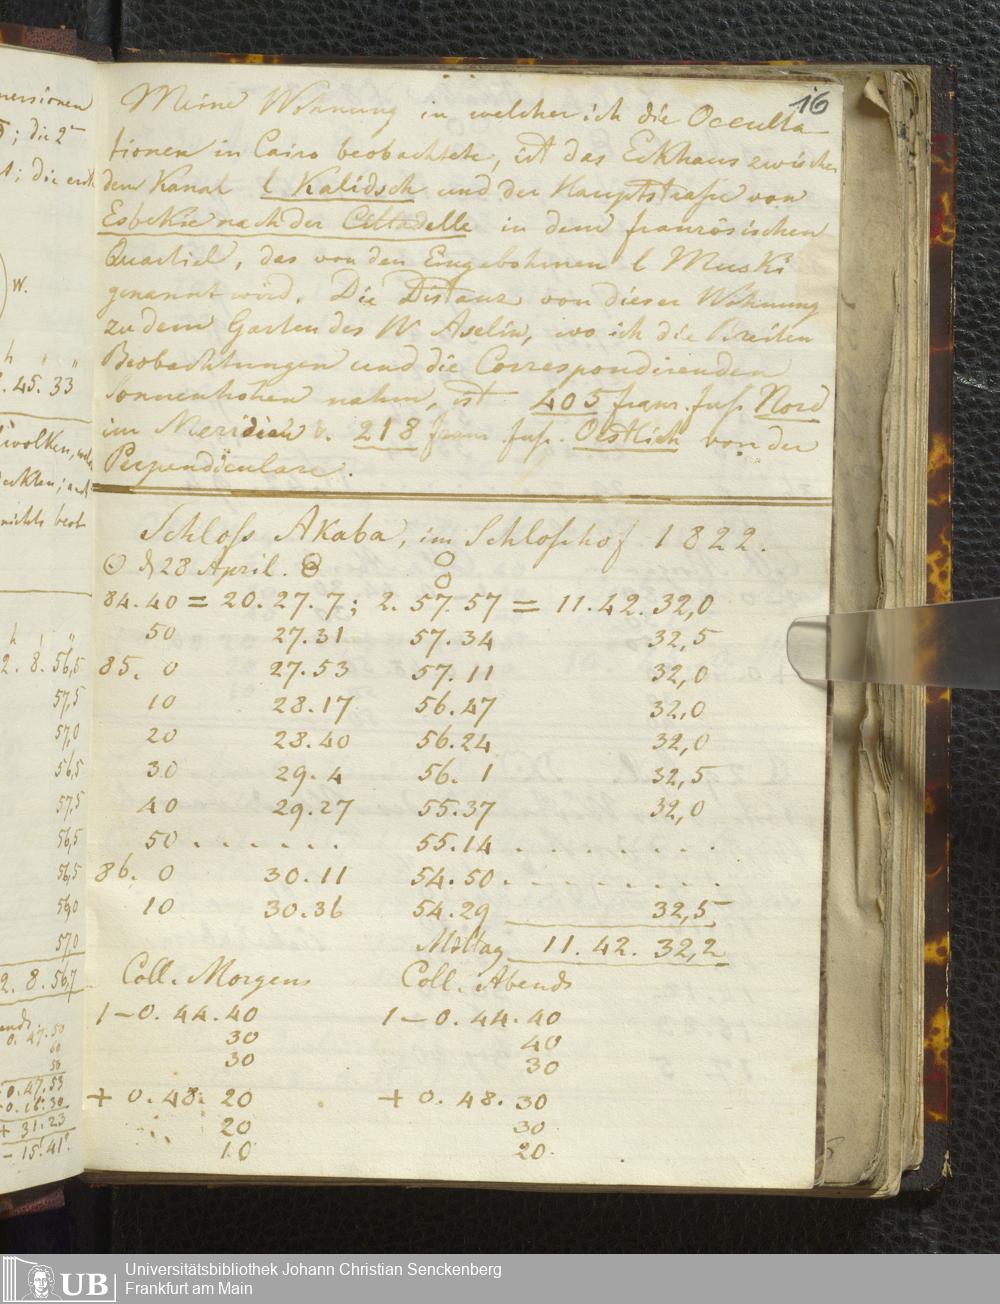 16
Meine Wohnung in welcher ich die Occulta-
tionen in Cairo beobachtete, ist das Eckhaus zwischen
dem Kanal l Kalidsch und der Hauptstraße von
Esbekie nach der Cittadelle in dem französischen
Quartiel, das von den Eingebohrnen l Muski
genannt wird. Die Distanz von dieser Wohnung
zu dem Garten des W Aselin, wo ich die Breiten
Beobachtungen und die Correspondirenden
Sonnenhöhen nahm, ist 405 franz. fuß. Nord
im Meridian u. 218 franz. fuß. Oestlich von der
Perpendiculare.
Schloss Akaba, im Schloßhof 1822.
28 April.
84.40 = 20.27.7; 2.57.57 = 11.42.32,0
50 27.31 57.34 32,5
85. 0 27.53 57.11 32,0
10 28.17 56.47 32,0
20 28.40 56.24 32,0
30 29.4 56. 1 32,5
40 29.27 55.37 32,0
50 . . . . . . 55.14 . . . . . . .
86. 0 30.11 54.50 . . . . . . . .
10 30.36 54.29 32,5
Mittag 11.42.32,2
Coll. Morgens Coll. Abends
1 – 0.44.40 1 – 0.44.40
30 40
30 30
+ 0.48.20 + 0.48.30
20 30
10 20
mersionen
W.
.45.33
2.8.56,5
57,5
57,0
56,5
57,5
56,5
56,5
57,0
2.8.56,7
0.47.50
0.47.53
+ 31.23
- 15.41
UB Universitätsbibliothek Johann Christian Senckenberg
Frankfurt am Main